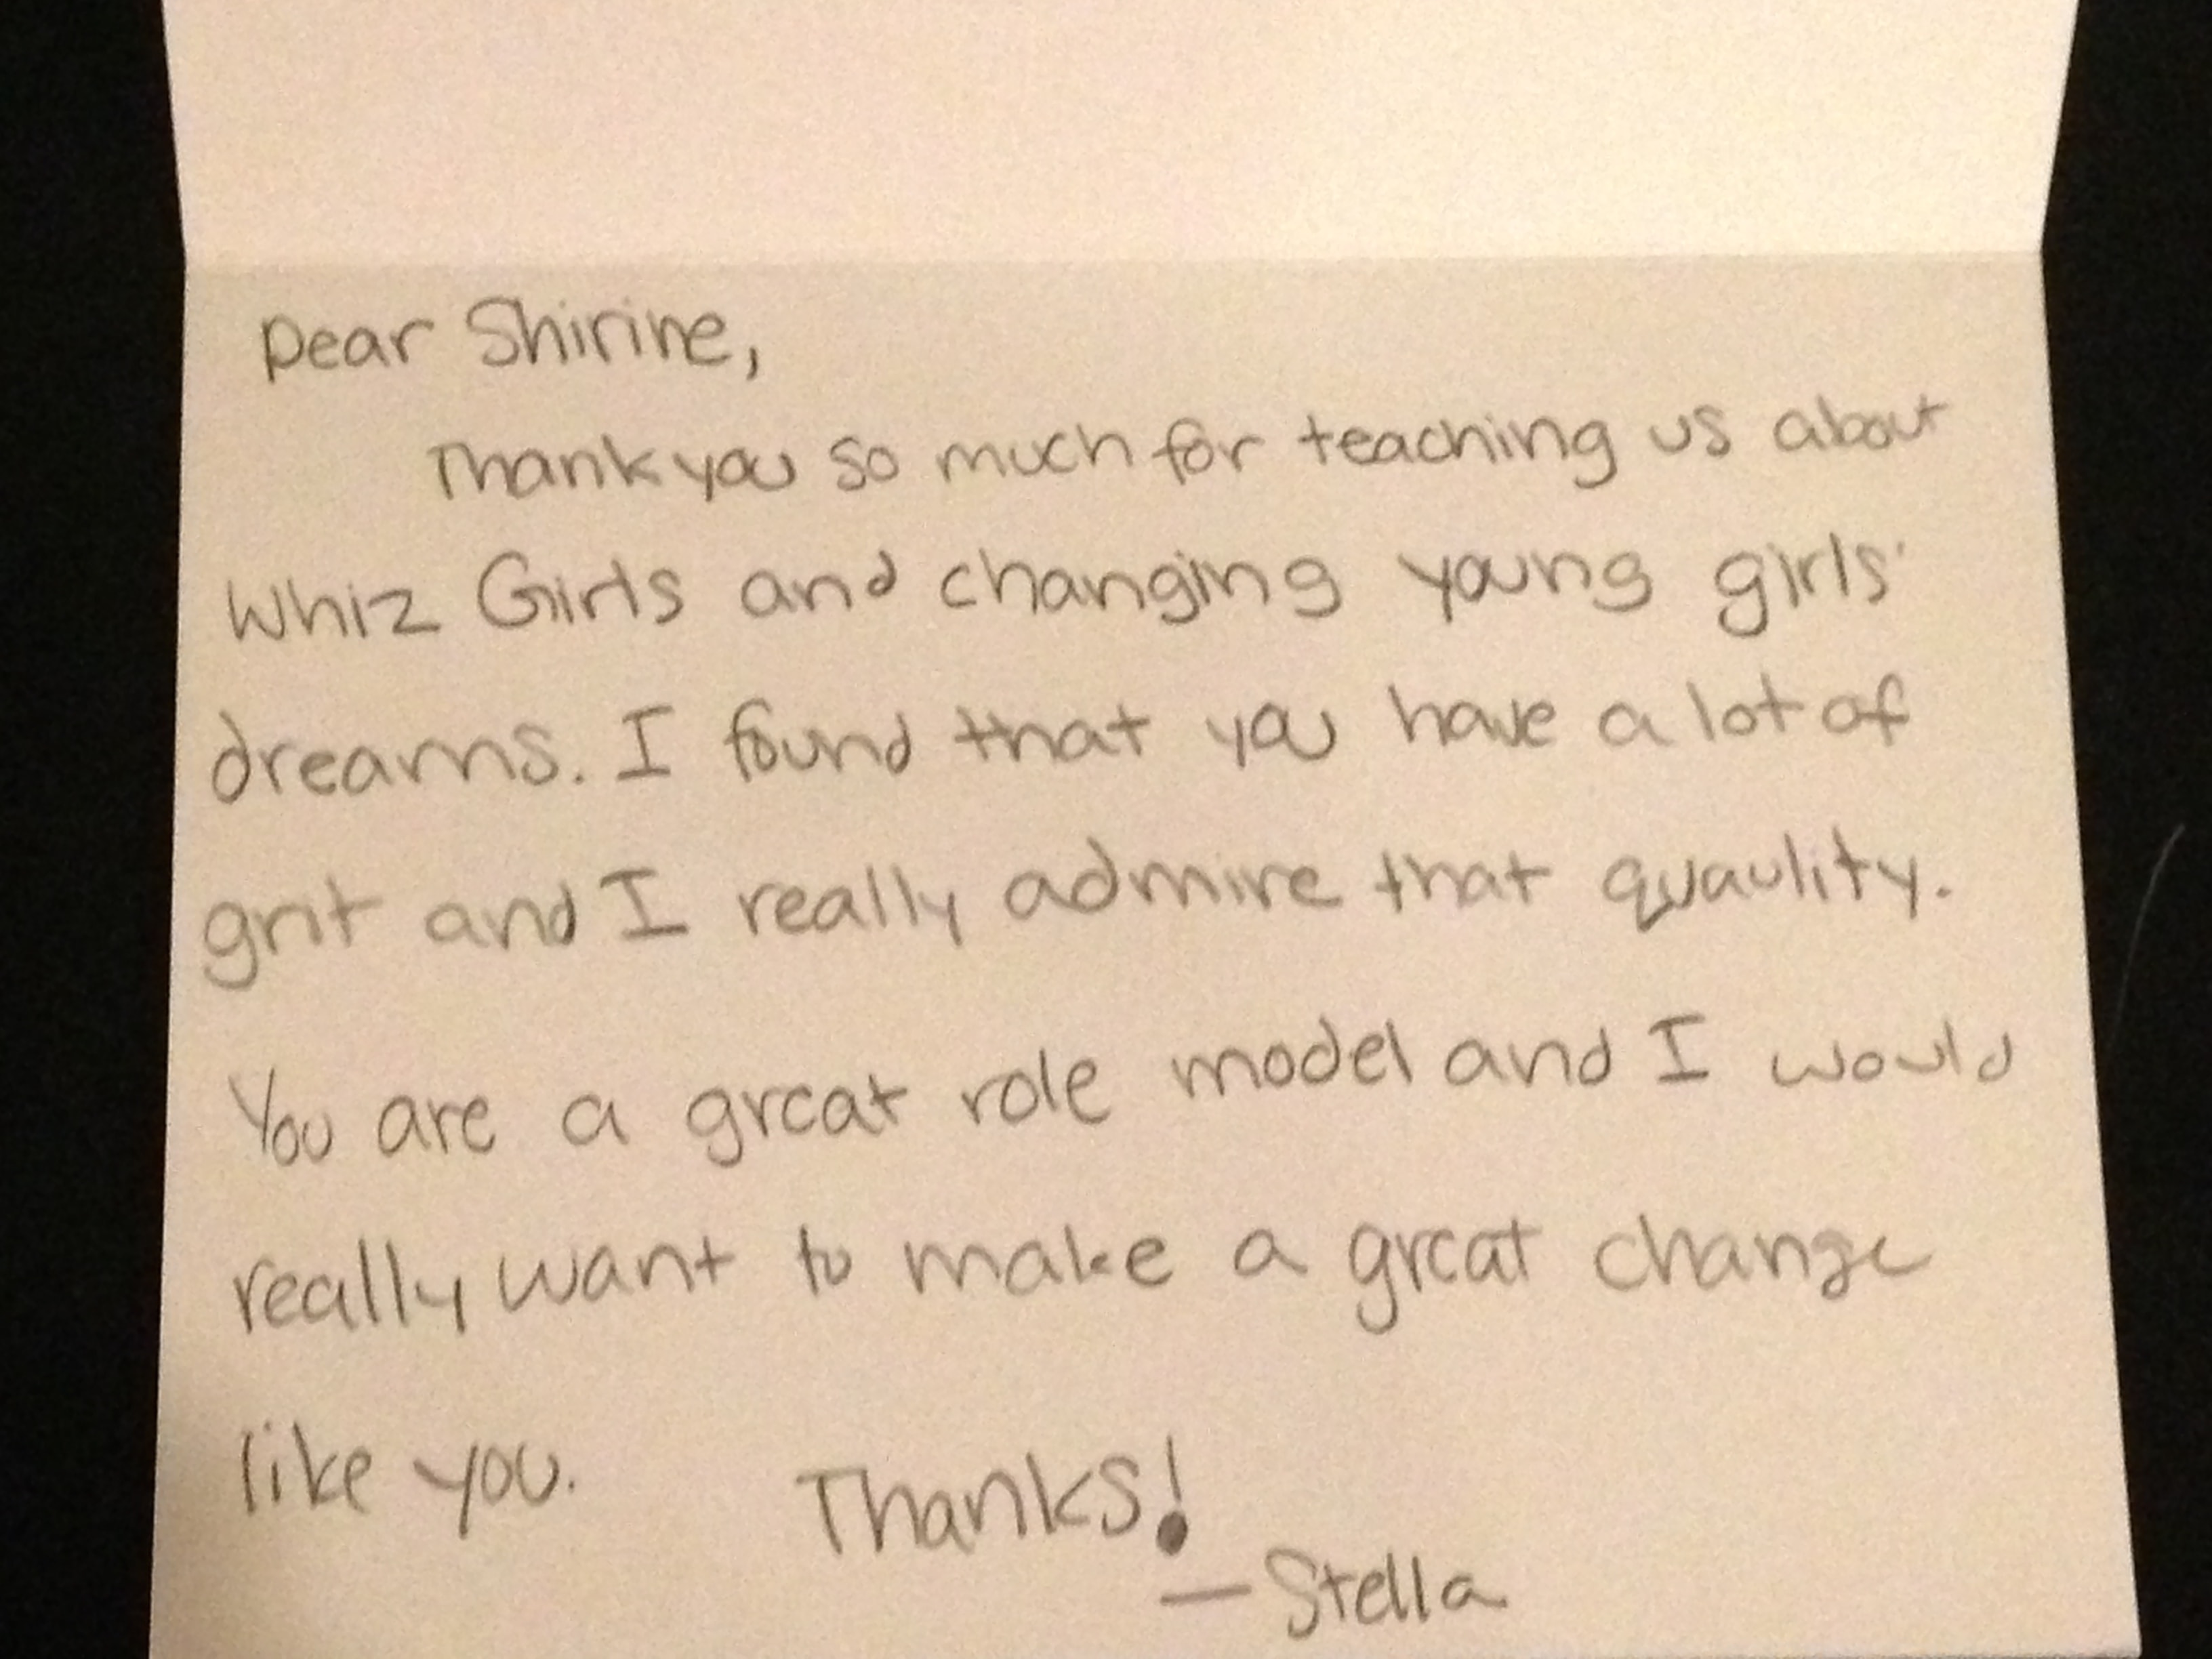 Dear Shirine,
Thank you so much for teaching us about
Whiz Girls and changing young girls'
dreams. I found that you have a lot of
grit and I really admire that quaulity.
You are a great role model and I would
really want to make a great change
like you. Thanks!
— Stella